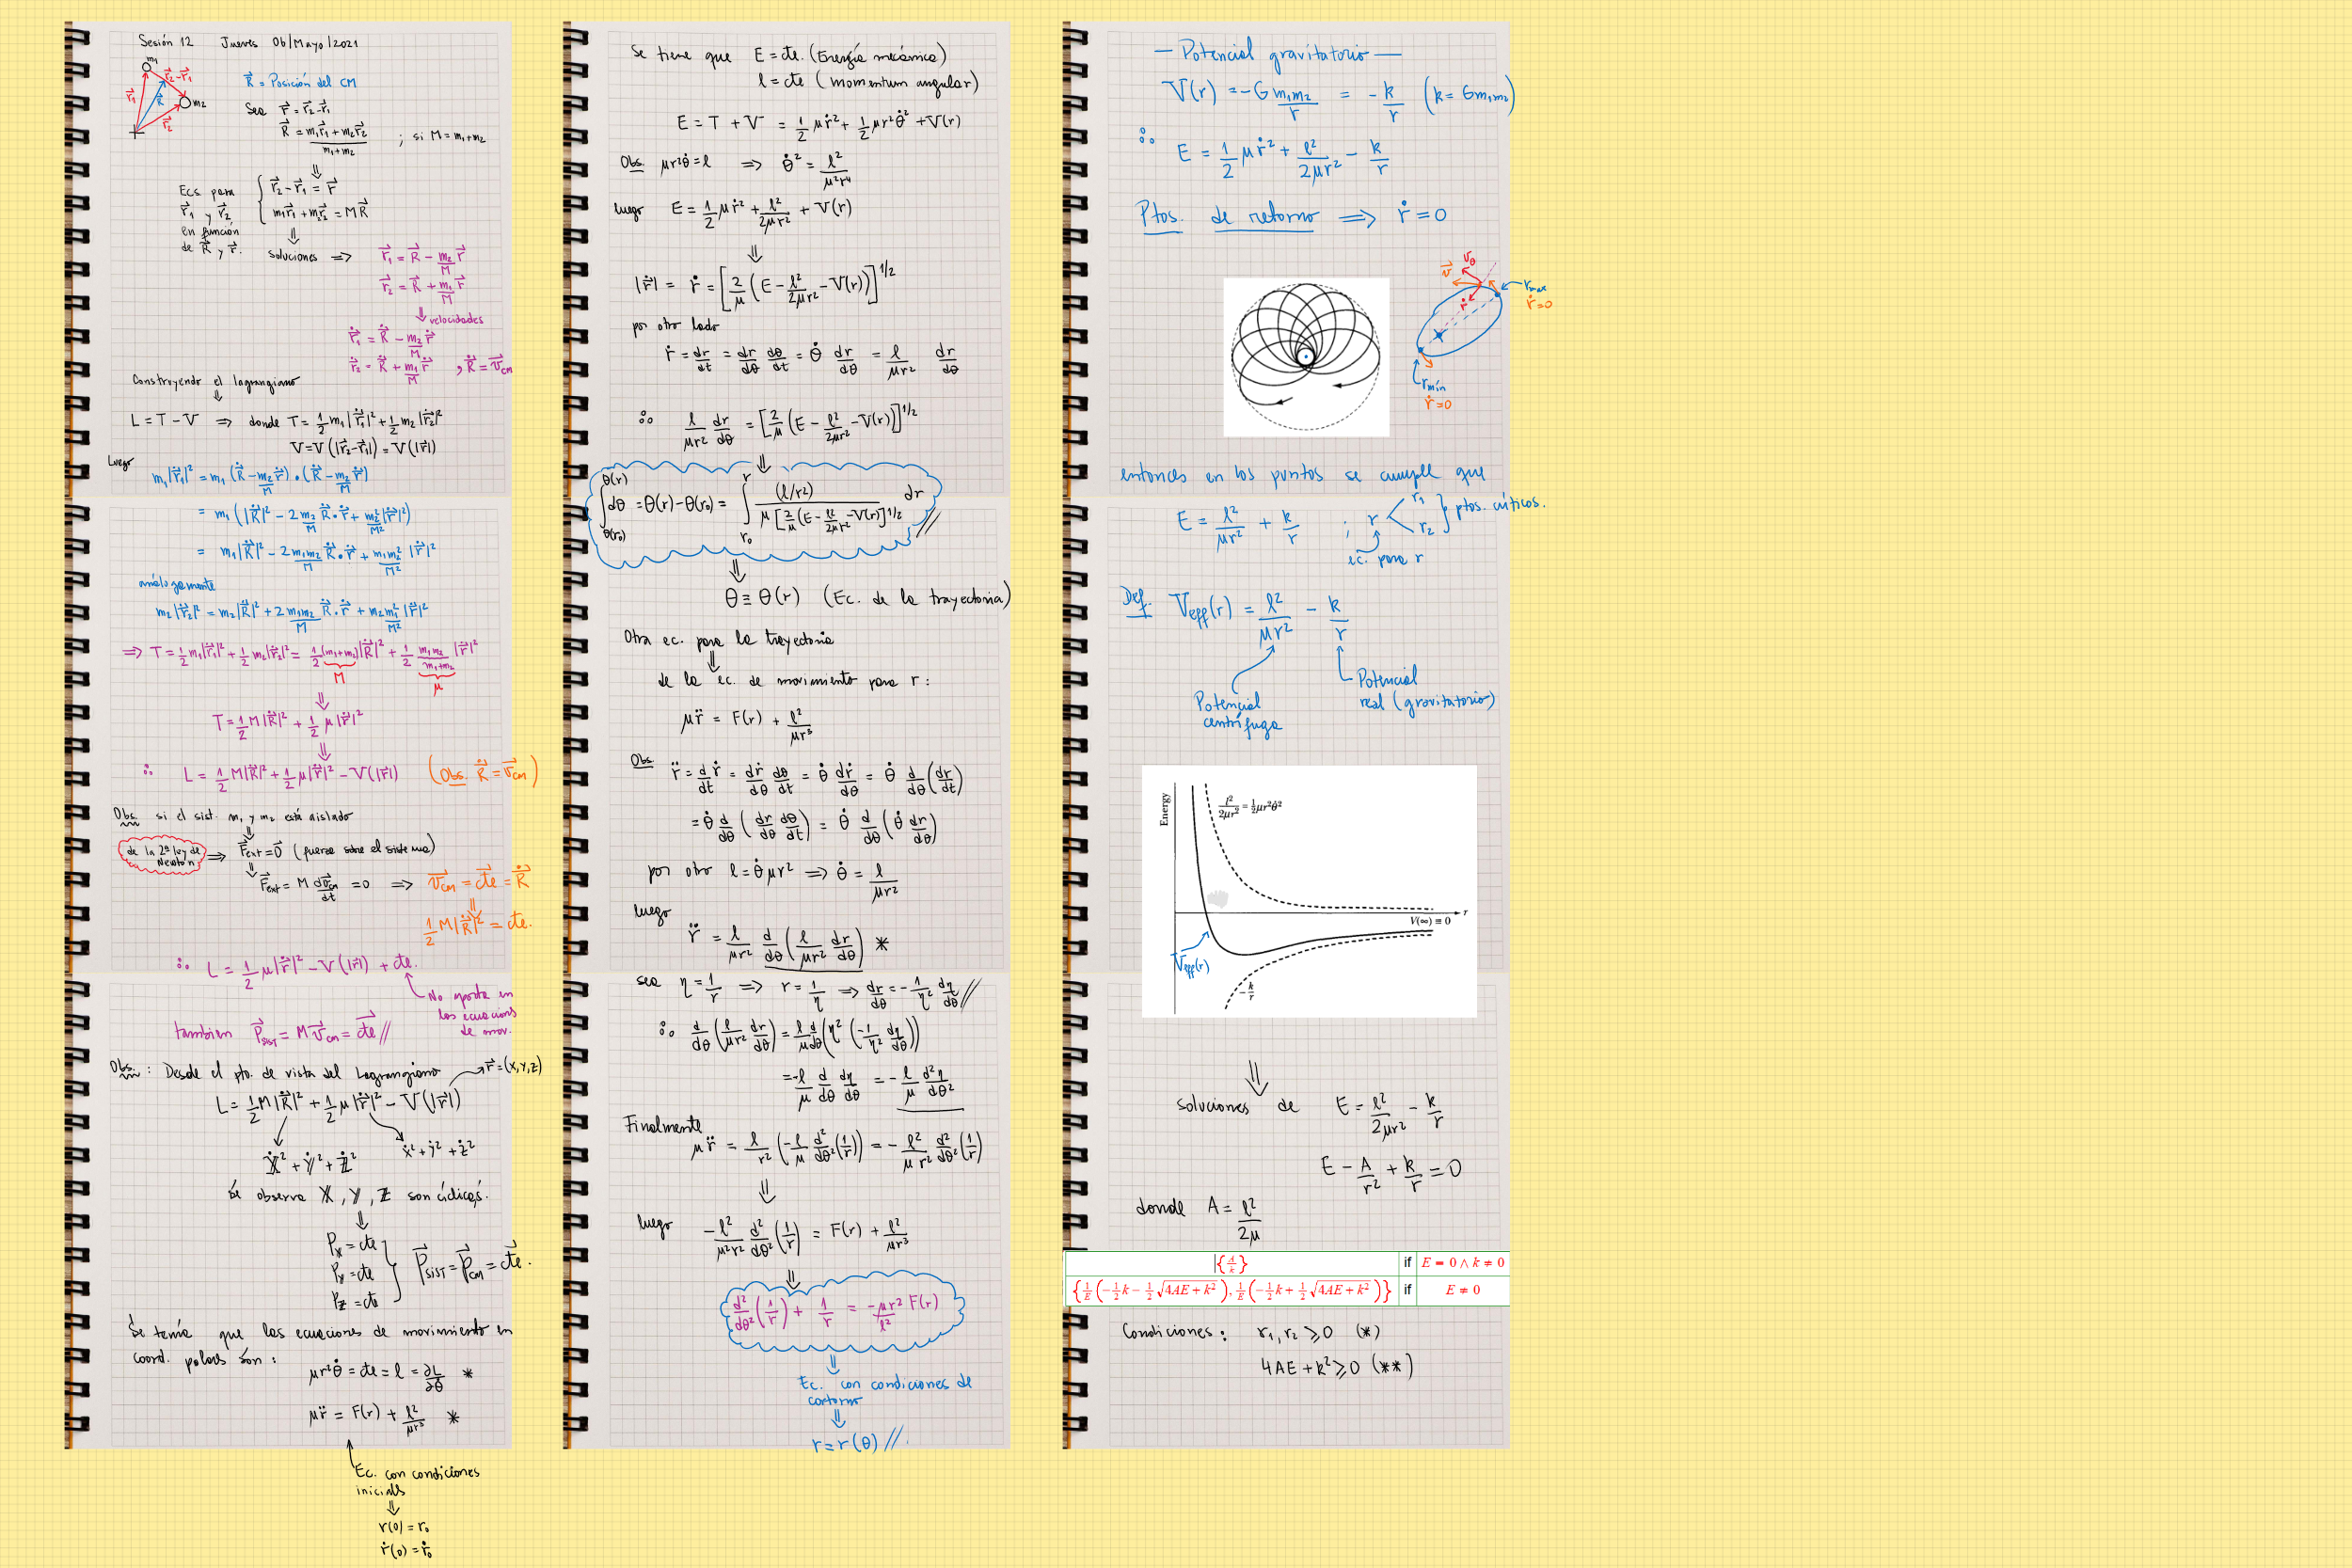 Sesión 12 Jueves 06/Mayo/2021
m₁
r⃗₂-r⃗₁
r⃗₁
R⃗
m₂
r⃗₂
R⃗ = Posición del CM
Sea r⃗ = r⃗₂-r⃗₁
R⃗ = (m₁r⃗₁+m₂r⃗₂)/(m₁+m₂) ; si M = m₁+m₂
⇓
Ecs para r⃗₁ y r⃗₂ en función de R⃗ y r⃗.
r⃗₂-r⃗₁ = r⃗
m₁r⃗₁+m₂r⃗₂ = MR⃗
⇓
soluciones ⇒ r⃗₁ = R⃗ - m₂/M r⃗
r⃗₂ = R⃗ + m₁/M r⃗
⇓ velocidades
ṙ⃗₁ = Ṙ⃗ - m₂/M ṙ⃗
ṙ⃗₂ = Ṙ⃗ + m₁/M ṙ⃗ , Ṙ⃗ = v⃗cm
Construyendo el lagrangiano
⇓
L = T - V ⇒ donde T = 1/2 m₁|ṙ⃗₁|² + 1/2 m₂|ṙ⃗₂|²
V = V(|r⃗₂-r⃗₁|) = V(|r⃗|)
Luego
m₁|ṙ⃗₁|² = m₁(Ṙ⃗ - m₂/M ṙ⃗)•(Ṙ⃗ - m₂/M ṙ⃗)
= m₁(|Ṙ⃗|² - 2 m₂/M Ṙ⃗•ṙ⃗ + m₂²/M² |ṙ⃗|²)
= m₁|Ṙ⃗|² - 2 m₁m₂/M Ṙ⃗•ṙ⃗ + m₁m₂²/M² |ṙ⃗|²
análogamente
m₂|ṙ⃗₂|² = m₂|Ṙ⃗|² + 2 m₁m₂/M Ṙ⃗•ṙ⃗ + m₂m₁²/M² |ṙ⃗|²
⇒ T = 1/2 m₁|ṙ⃗₁|² + 1/2 m₂|ṙ⃗₂|² = 1/2 (m₁+m₂)|Ṙ⃗|² + 1/2 m₁m₂/(m₁+m₂) |ṙ⃗|²
M μ
⇓
T = 1/2 M|Ṙ⃗|² + 1/2 μ|ṙ⃗|²
⇓
∴ L = 1/2 M|Ṙ⃗|² + 1/2 μ|ṙ⃗|² - V(|r⃗|) (Obs. Ṙ⃗ = v⃗cm)
Obs. si el sist. m₁ y m₂ está aislado
⇓
de la 2ª ley de Newton ⇒ F⃗ext = 0⃗ (fuerza sobre el sistema)
⇓
F⃗ext = M dv⃗cm/dt = 0 ⇒ v⃗cm = cte⃗ = Ṙ⃗
⇓
1/2 M|Ṙ⃗|² = cte.
∴ L = 1/2 μ|ṙ⃗|² - V(|r⃗|) + cte.
No aporta en las ecuaciones de mov.
tambien P⃗sist = M v⃗cm = cte⃗ //
Obs.: Desde el pto. de vista del Lagrangiano
r⃗ = (x,y,z)
L = 1/2 M|Ṙ⃗|² + 1/2 μ|ṙ⃗|² - V(|r⃗|)
Ẋ² + Ẏ² + Ż²
ẋ² + ẏ² + ż²
Se observa X, Y, Z son cíclicas.
⇓
Px = cte
Py = cte
Pz = cte
P⃗sist = P⃗cm = cte⃗.
Se tenía que las ecuaciones de movimiento en
coord. polares son:
μr²θ̇ = cte = l = ∂L/∂θ̇ *
μr̈ = F(r) + l²/μr³ *
Ec. con condiciones
iniciales
⇓
r(0) = r₀
ṙ(0) = ṙ₀
Se tiene que E = cte. (Energía mecánica)
l = cte (momentum angular)
E = T + V = 1/2 μṙ² + 1/2 μr²θ̇² + V(r)
Obs. μr²θ̇ = l ⇒ θ̇² = l²/μ²r⁴
luego E = 1/2 μṙ² + l²/2μr² + V(r)
⇓
|ṙ⃗| = ṙ = [2/μ (E - l²/2μr² - V(r))]^1/2
por otro lado
ṙ = dr/dt = dr/dθ dθ/dt = θ̇ dr/dθ = l/μr² dr/dθ
∴ l/μr² dr/dθ = [2/μ (E - l²/2μr² - V(r))]^1/2
⇓
∫_θ(r₀)^θ(r) dθ = θ(r)-θ(r₀) = ∫_r₀^r (l/r²) / μ[2/μ (E - l²/2μr² - V(r))]^1/2 dr //
⇓
θ ≡ θ(r) (Ec. de la trayectoria)
Otra ec. para la trayectoria
⇓
de la ec. de movimiento para r:
μr̈ = F(r) + l²/μr³
Obs. r̈ = d/dt ṙ = dṙ/dθ dθ/dt = θ̇ dṙ/dθ = θ̇ d/dθ (dr/dt)
= θ̇ d/dθ (dr/dθ dθ/dt) = θ̇ d/dθ (θ̇ dr/dθ)
por otro l = θ̇μr² ⇒ θ̇ = l/μr²
luego
r̈ = l/μr² d/dθ (l/μr² dr/dθ) *
sea η = 1/r ⇒ r = 1/η ⇒ dr/dθ = -1/η² dη/dθ //
∴ d/dθ (l/μr² dr/dθ) = l/μ d/dθ (η² (-1/η² dη/dθ))
= -l/μ d/dθ dη/dθ = -l/μ d²η/dθ²
Finalmente
μr̈ = l/r² (-l/μ d²/dθ² (1/r)) = -l²/μr² d²/dθ² (1/r)
⇓
luego -l²/μ²r² d²/dθ² (1/r) = F(r) + l²/μr³
⇓
d²/dθ² (1/r) + 1/r = -μr²/l² F(r)
⇓
Ec. con condiciones de
contorno
⇓
r = r(θ) //
— Potencial gravitatorio —
V(r) = -G m₁m₂/r = -k/r (k = Gm₁m₂)
∴ E = 1/2 μṙ² + l²/2μr² - k/r
Ptos. de retorno ⇒ ṙ = 0
v⃗ vθ
ṙ
rmax
ṙ=0
rmín
ṙ=0
entonces en los puntos se cumple que
E = l²/μr² + k/r ; r < r₁ r₂ } ptos. críticos.
ec. para r
Def. Veff(r) = l²/μr² - k/r
Potencial centrífuga
Potencial real (gravitatorio)
Energy
l²/2μr² = ½μr²θ̇²
r
V(∞) ≡ 0
Veff(r)
-k/r
⇓
soluciones de E = l²/2μr² - k/r
E - A/r² + k/r = 0
donde A = l²/2μ
{A/k} if E = 0 ∧ k ≠ 0
{1/E (-1/2 k - 1/2 √(4AE + k²)), 1/E (-1/2 k + 1/2 √(4AE + k²))} if E ≠ 0
Condiciones: r₁, r₂ ⩾ 0 (*)
4AE + k² ⩾ 0 (**)